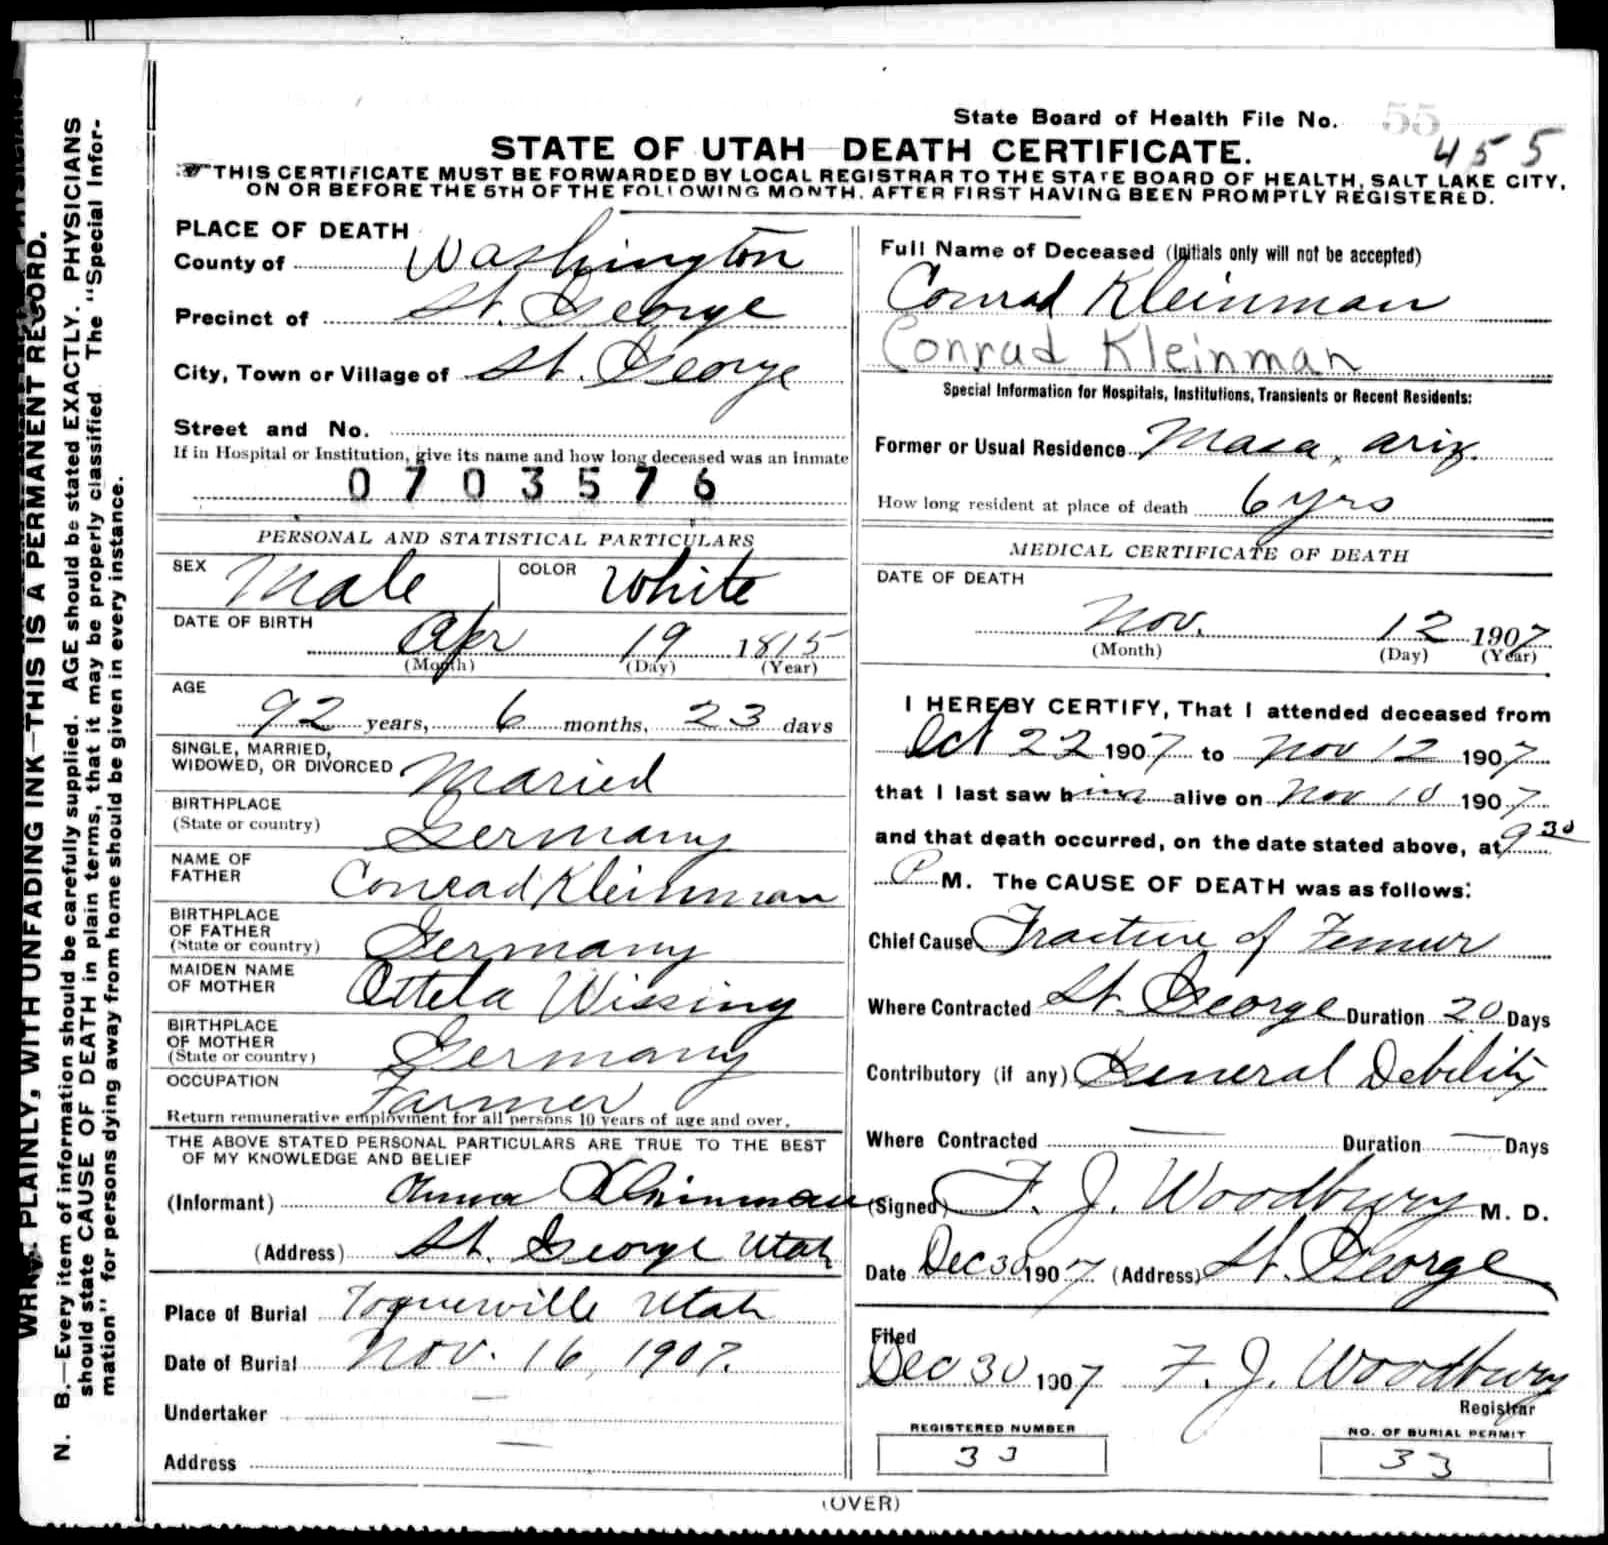 State Board of Health File No. 55
455
STATE OF UTAH—DEATH CERTIFICATE.
THIS CERTIFICATE MUST BE FORWARDED BY LOCAL REGISTRAR TO THE STATE BOARD OF HEALTH, SALT LAKE CITY,
ON OR BEFORE THE 5TH OF THE FOLLOWING MONTH, AFTER FIRST HAVING BEEN PROMPTLY REGISTERED.
PLACE OF DEATH
County of Washington
Precinct of St. George
City, Town or Village of St. George
Street and No.
If in Hospital or Institution, give its name and how long deceased was an inmate
0703576
PERSONAL AND STATISTICAL PARTICULARS
SEX Male COLOR White
DATE OF BIRTH
Apr 19 1815
(Month) (Day) (Year)
AGE
92 years, 6 months, 23 days
SINGLE, MARRIED,
WIDOWED, OR DIVORCED Maried
BIRTHPLACE
(State or country) Germany
NAME OF
FATHER Conrad Kleinman
BIRTHPLACE
OF FATHER
(State or country) Germany
MAIDEN NAME
OF MOTHER Ottela Wissing
BIRTHPLACE
OF MOTHER
(State or country) Germany
OCCUPATION Farmer
Return remunerative employment for all persons 10 years of age and over.
THE ABOVE STATED PERSONAL PARTICULARS ARE TRUE TO THE BEST
OF MY KNOWLEDGE AND BELIEF
(Informant) Anna Kleinman
(Address) St. George Utah
Place of Burial Toquerville Utah
Date of Burial Nov. 16, 1907.
Undertaker —
Address —
Full Name of Deceased (Initials only will not be accepted)
Conrad Kleinman
Conrad Kleinman
Special Information for Hospitals, Institutions, Transients or Recent Residents:
Former or Usual Residence Masa, Ariz.
How long resident at place of death 6 yrs
MEDICAL CERTIFICATE OF DEATH
DATE OF DEATH
Nov. 12 1907
(Month) (Day) (Year)
I HEREBY CERTIFY, That I attended deceased from
Oct 22 1907 to Nov 12 1907
that I last saw him alive on Nov 10 1907
and that death occurred, on the date stated above, at 9 30
P M. The CAUSE OF DEATH was as follows:
Chief Cause Fracture of Femur
Where Contracted St. George Duration 20 Days
Contributory (if any) General Debility
Where Contracted — Duration — Days
(Signed) F. J. Woodbury M. D.
Date Dec 30 1907 (Address) St. George
Filed
Dec 30 1907 F. J. Woodbury
Registrar
REGISTERED NUMBER
33
NO. OF BURIAL PERMIT
33
(OVER)
PLAINLY, WITH UNFADING INK—THIS IS A PERMANENT RECORD.
N. B.—Every item of information should be carefully supplied. AGE should be stated EXACTLY. PHYSICIANS
should state CAUSE OF DEATH in plain terms, that it may be properly classified. The "Special Infor-
mation" for persons dying away from home should be given in every instance.